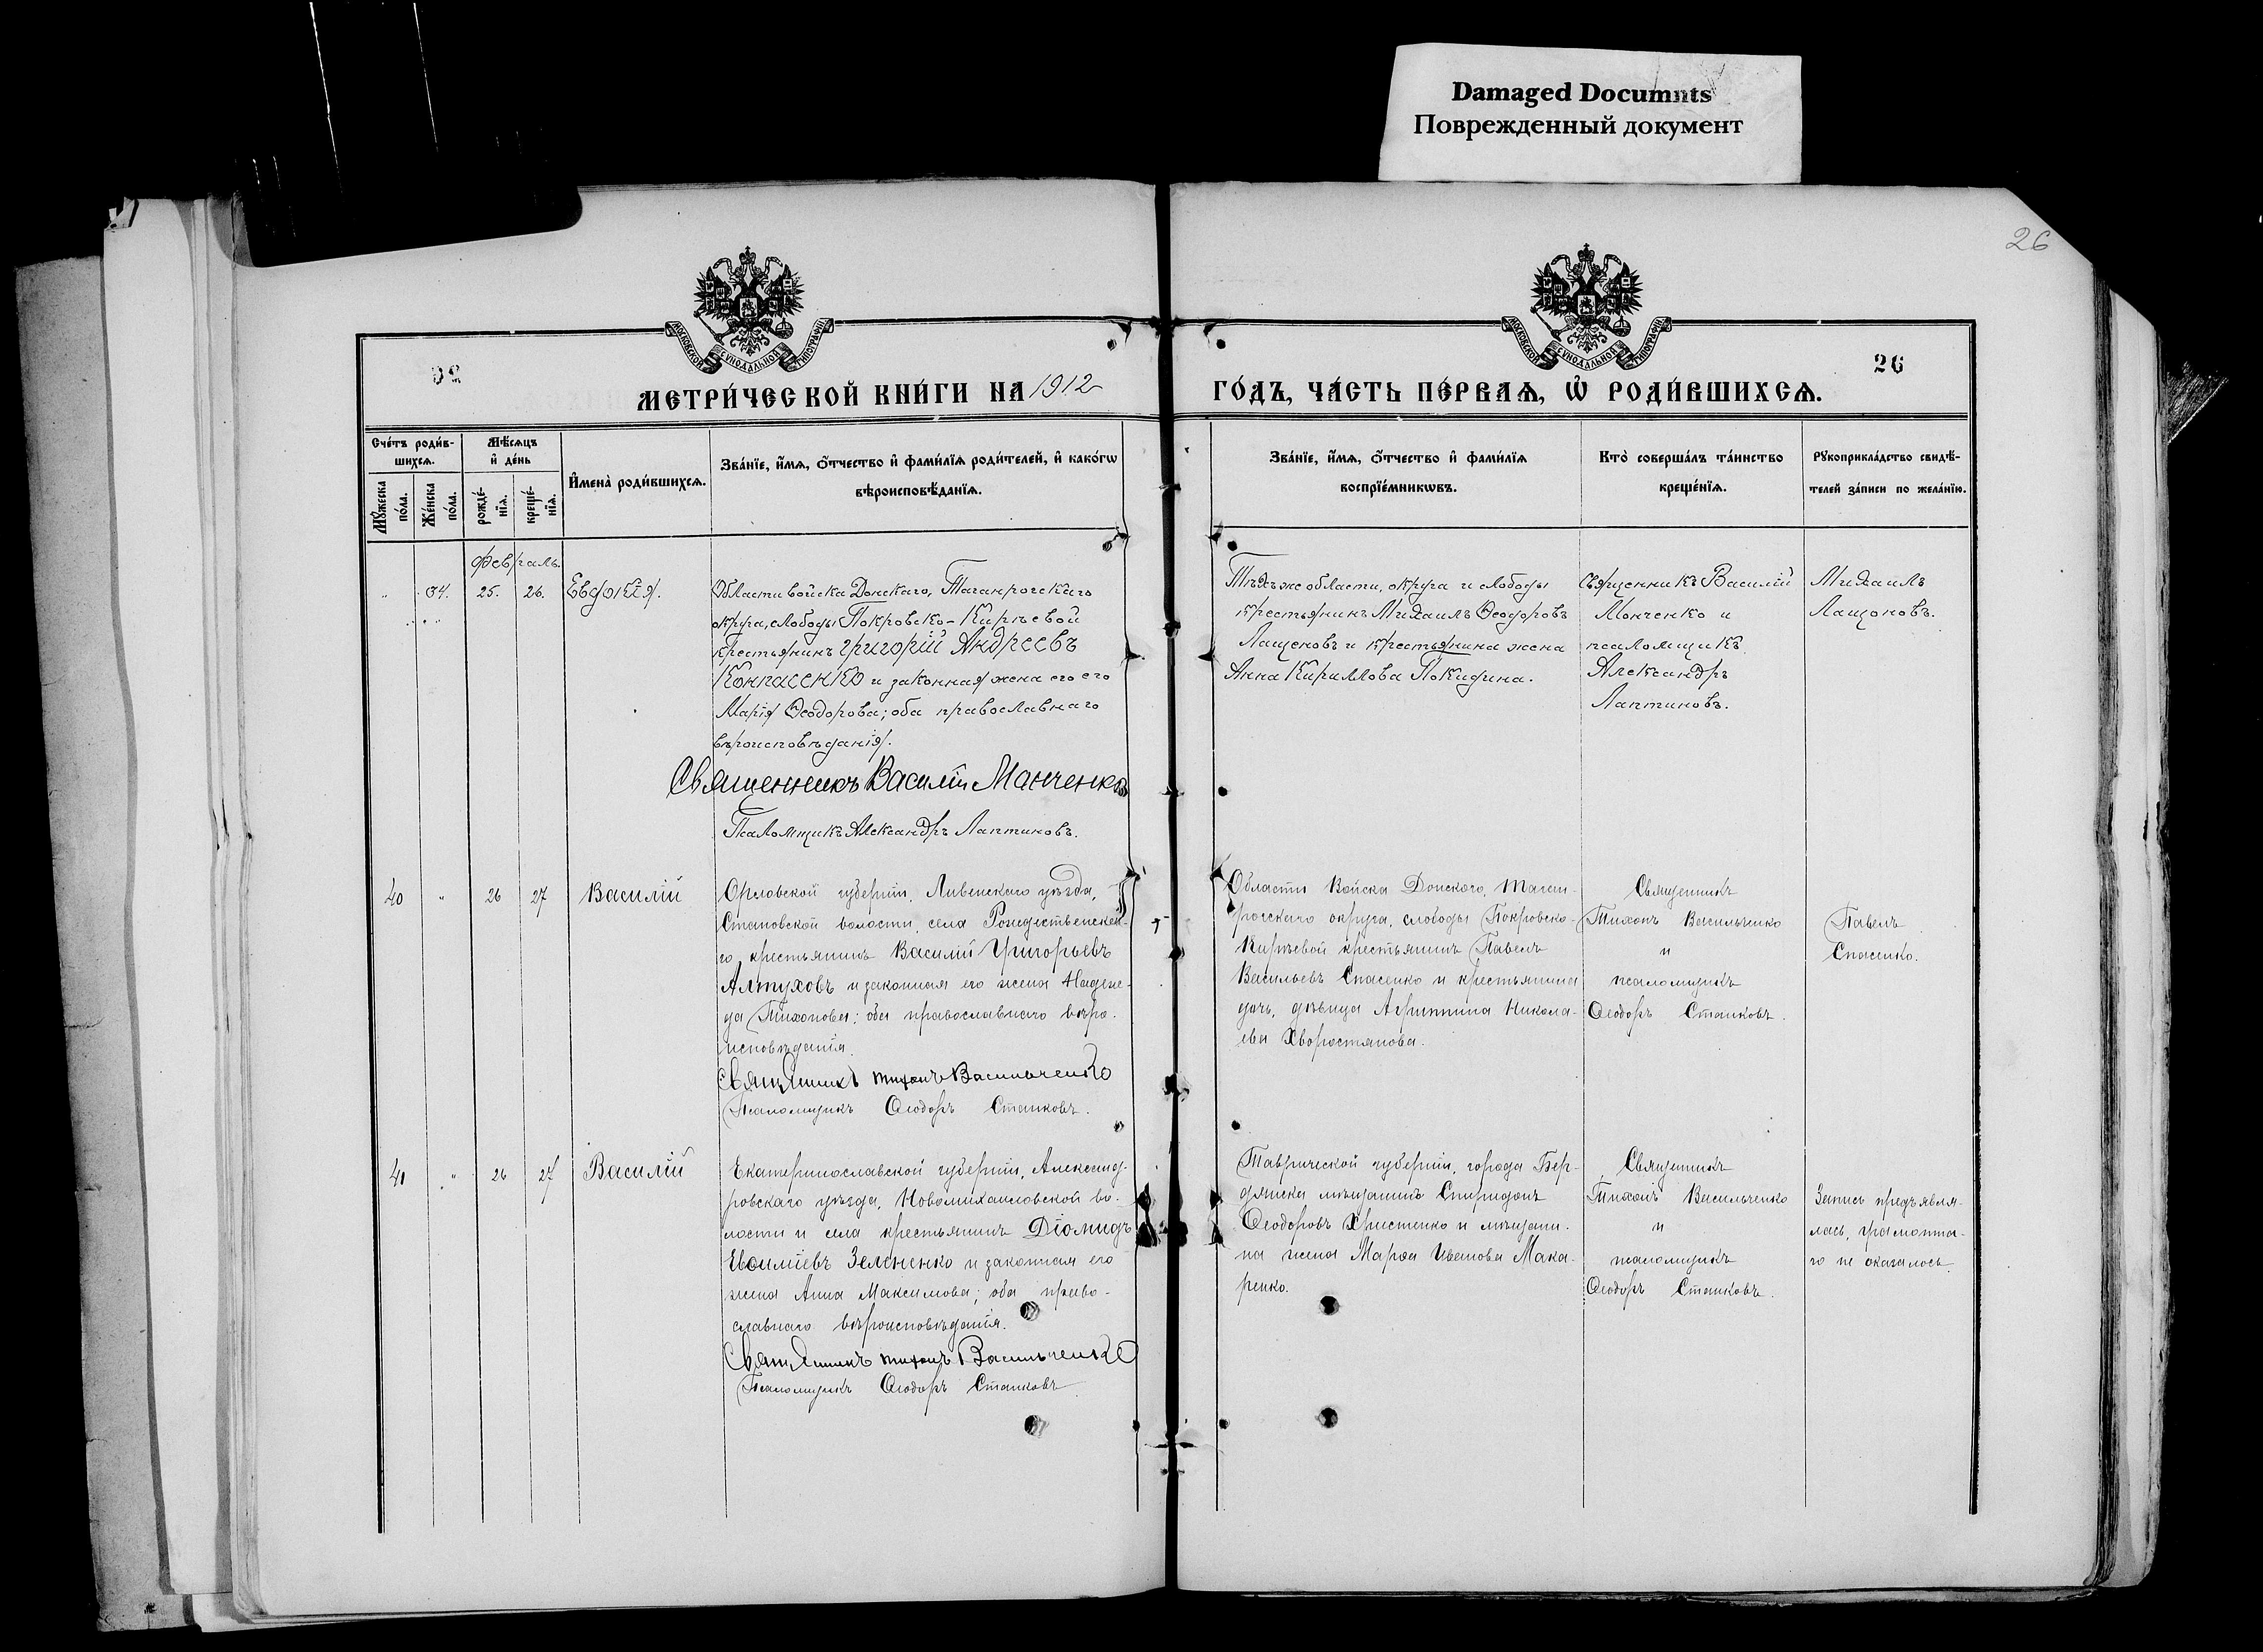 Damaged Documnts
Поврежденный документ
26
МОСКОВСКОЙ СѴНОДАЛЬНОЙ ТИПОГРАФІИ
МОСКОВСКОЙ СѴНОДАЛЬНОЙ ТИПОГРАФІИ
26
МЕТРИ́ЧЕСКОЙ КНИ́ГИ НА 1912
ГО́ДЪ, ЧА́СТЬ ПЕ́РВАѦ, Ѡ РОДИ́ВШИХСѦ.
Сче́тъ роди́в-
шихсѧ.
Мѣ́сѧцъ
и де́нь
Мꙋ́жеска по́ла.
Же́нска по́ла.
рожде́-
нїѧ.
креще́-
нїѧ.
Имена̀ роди́вшихсѧ.
Зва́нїе, и́мѧ, о́тчество и фами́лїѧ роди́телей, и како́гѡ
вѣроисповѣ́данїѧ.
Зва́нїе, и́мѧ, о́тчество и фами́лїѧ
воспрїе́мникѡвъ.
Кто̀ соверша́лъ та́инство
креще́нїѧ.
Рꙋкоприкла́дство свидѣ́-
телей за́писи по жела́нїю.
Февраль.
" 34. 25. 26. Евдокія.
Области войска Донскаго, Таганрогскаго
округа, слободы Покровско-Кирѣевой
крестьянинъ Григорій Андреевъ
и законная жена его его
Марія Ѳеодорова; оба православнаго
вѣроисповѣданія.
Священникъ Василій Манченко
Псаломщикъ Александръ Лаптиновъ.
Тѣхъ же области, округа и слободы
крестьянинъ Михаилъ Ѳеодоровъ
Лащеновъ и крестьянина жена
Анна Кириллова Покидина.
Священникъ Василій
Монченко и
псаломщикъ
Александръ
Лаптиновъ.
Михаилъ
Лащоновъ.
40 " 26 27 Василій
Орловской губерніи, Ливенскаго уѣзда,
Становской волости, села Рождественска-
го крестьянинъ Василій Григорьевъ
Алтуховъ и законная его жена Надеж-
да Тихонова; оба православнаго вѣро-
исповѣданія.
Священникъ Тихонъ Васильченко
Псаломщикъ Ѳеодоръ Станковъ.
Области Войска Донского, Таган-
рогскаго округа, слободы Покровско-
Кирѣевой крестьянинъ Павелъ
Васильевъ Спасенко и крестьянина
дочь, дѣвица Агриппина Никола-
ева Хворостянова.
Священникъ
Тихонъ Васильченко
и
псаломщикъ
Ѳеодоръ Станковъ.
Павелъ
Спасенко.
41 " 26 27 Василій
Екатеринославской губерніи, Александ-
ровскаго уѣзда, Новомихайловской во-
лости и села крестьянинъ Діомидъ
Зелененко и законная его
жена Анна Максимова; оба право-
славнаго вѣроисповѣданія.
Священникъ Тихонъ Васильченко
Псаломщикъ Ѳеодоръ Станковъ
Таврической губерніи, города Бер-
дянска мѣщанинъ Спиридонъ
Ѳеодоровъ Христенко и мѣщани-
на жена Марѳа Иванова Мака-
ренко.
Священникъ
Тихонъ Васильченко
и
псаломщикъ
Ѳеодоръ Станковъ.
Запись предъявля-
лась, грамотна-
го не оказалось.